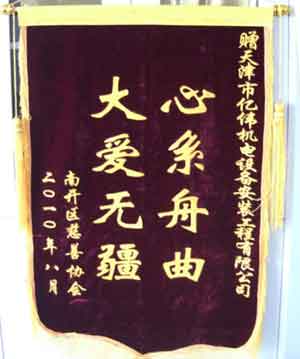 赠天津市亿伟机电设备安装工程有限公司
心系舟曲
大爱无疆
南开区慈善协会
二〇一〇年八月